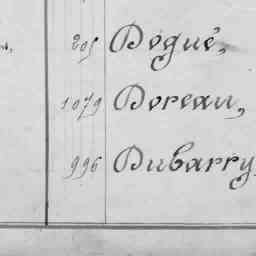 205 Dogué,
1079 Doreau,
996 Dubarry,